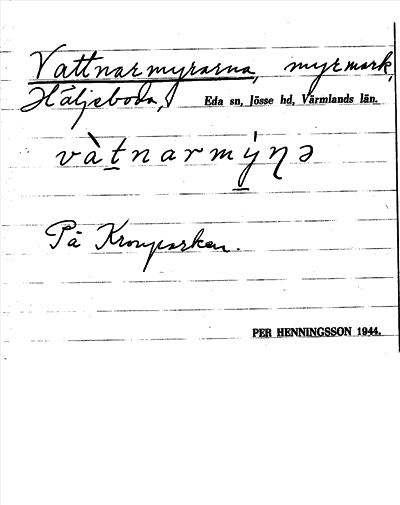 Vattnarmyrarna, myrmark,
Häljeboda, Eda sn, Jösse hd, Värmlands län.
vàtnarmýŋə
På Kronparken.
PER HENNINGSSON 1944.